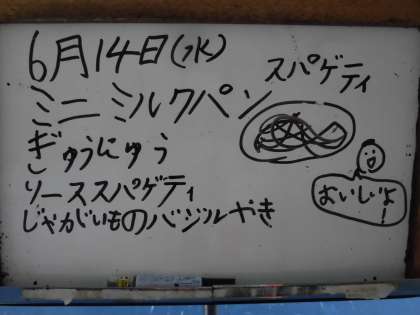 6月14日(水)
ミニミルクパン
ぎゅうにゅう
ソーススパゲティ
じゃがいものバジルやき
スパゲティ
おいしいよ!